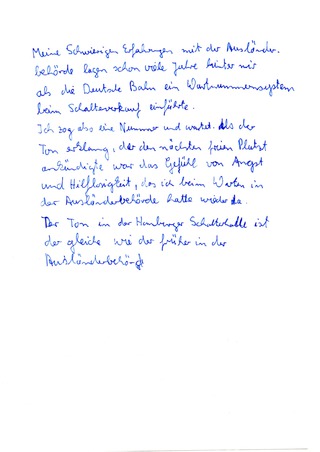 Meine Schwierigen Erfahrungen mit der Ausländer-
behörde lagen schon viele Jahre hinter mir
als die Deutsche Bahn ein Wartnummernsystem
beim Schalterverkauf einführte.
Ich zog also eine Nummer und wartet. Als der
Ton erklang, der den nächsten freien Platzt
ankündigte war das Gefühl von Angst
und Hilflosigkeit, das ich beim Warten in
der Ausländerbehörde hatte wieder da.
Der Ton in der Hamburger Schalterhalle ist
der gleiche wie der früher in der
Ausländerbehörde